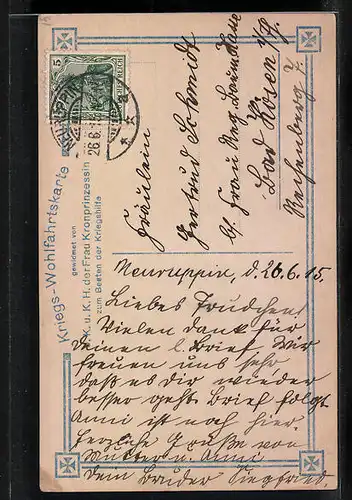 Kriegs-Wohlfahrtskarte
gewidmet von
K. u. K. H. der Frau Kronprinzessin
zum Besten der Kriegshilfe
NEURUPPIN
26.6.
5
Fräulein
Gertrud Schmidt
b/ Frau Reg.
Bad Kösen
Neuruppin, d. 26.6.15.
Liebes Trudchen!
Vielen Dank für
Deinen l. Brief Wir
freuen uns sehr
daß es Dir wieder
besser geht. Brief folgt
Anni ist noch hier.
Herzliche Grüße von
Mutter u. Anni
Dein Bruder Siegfried.